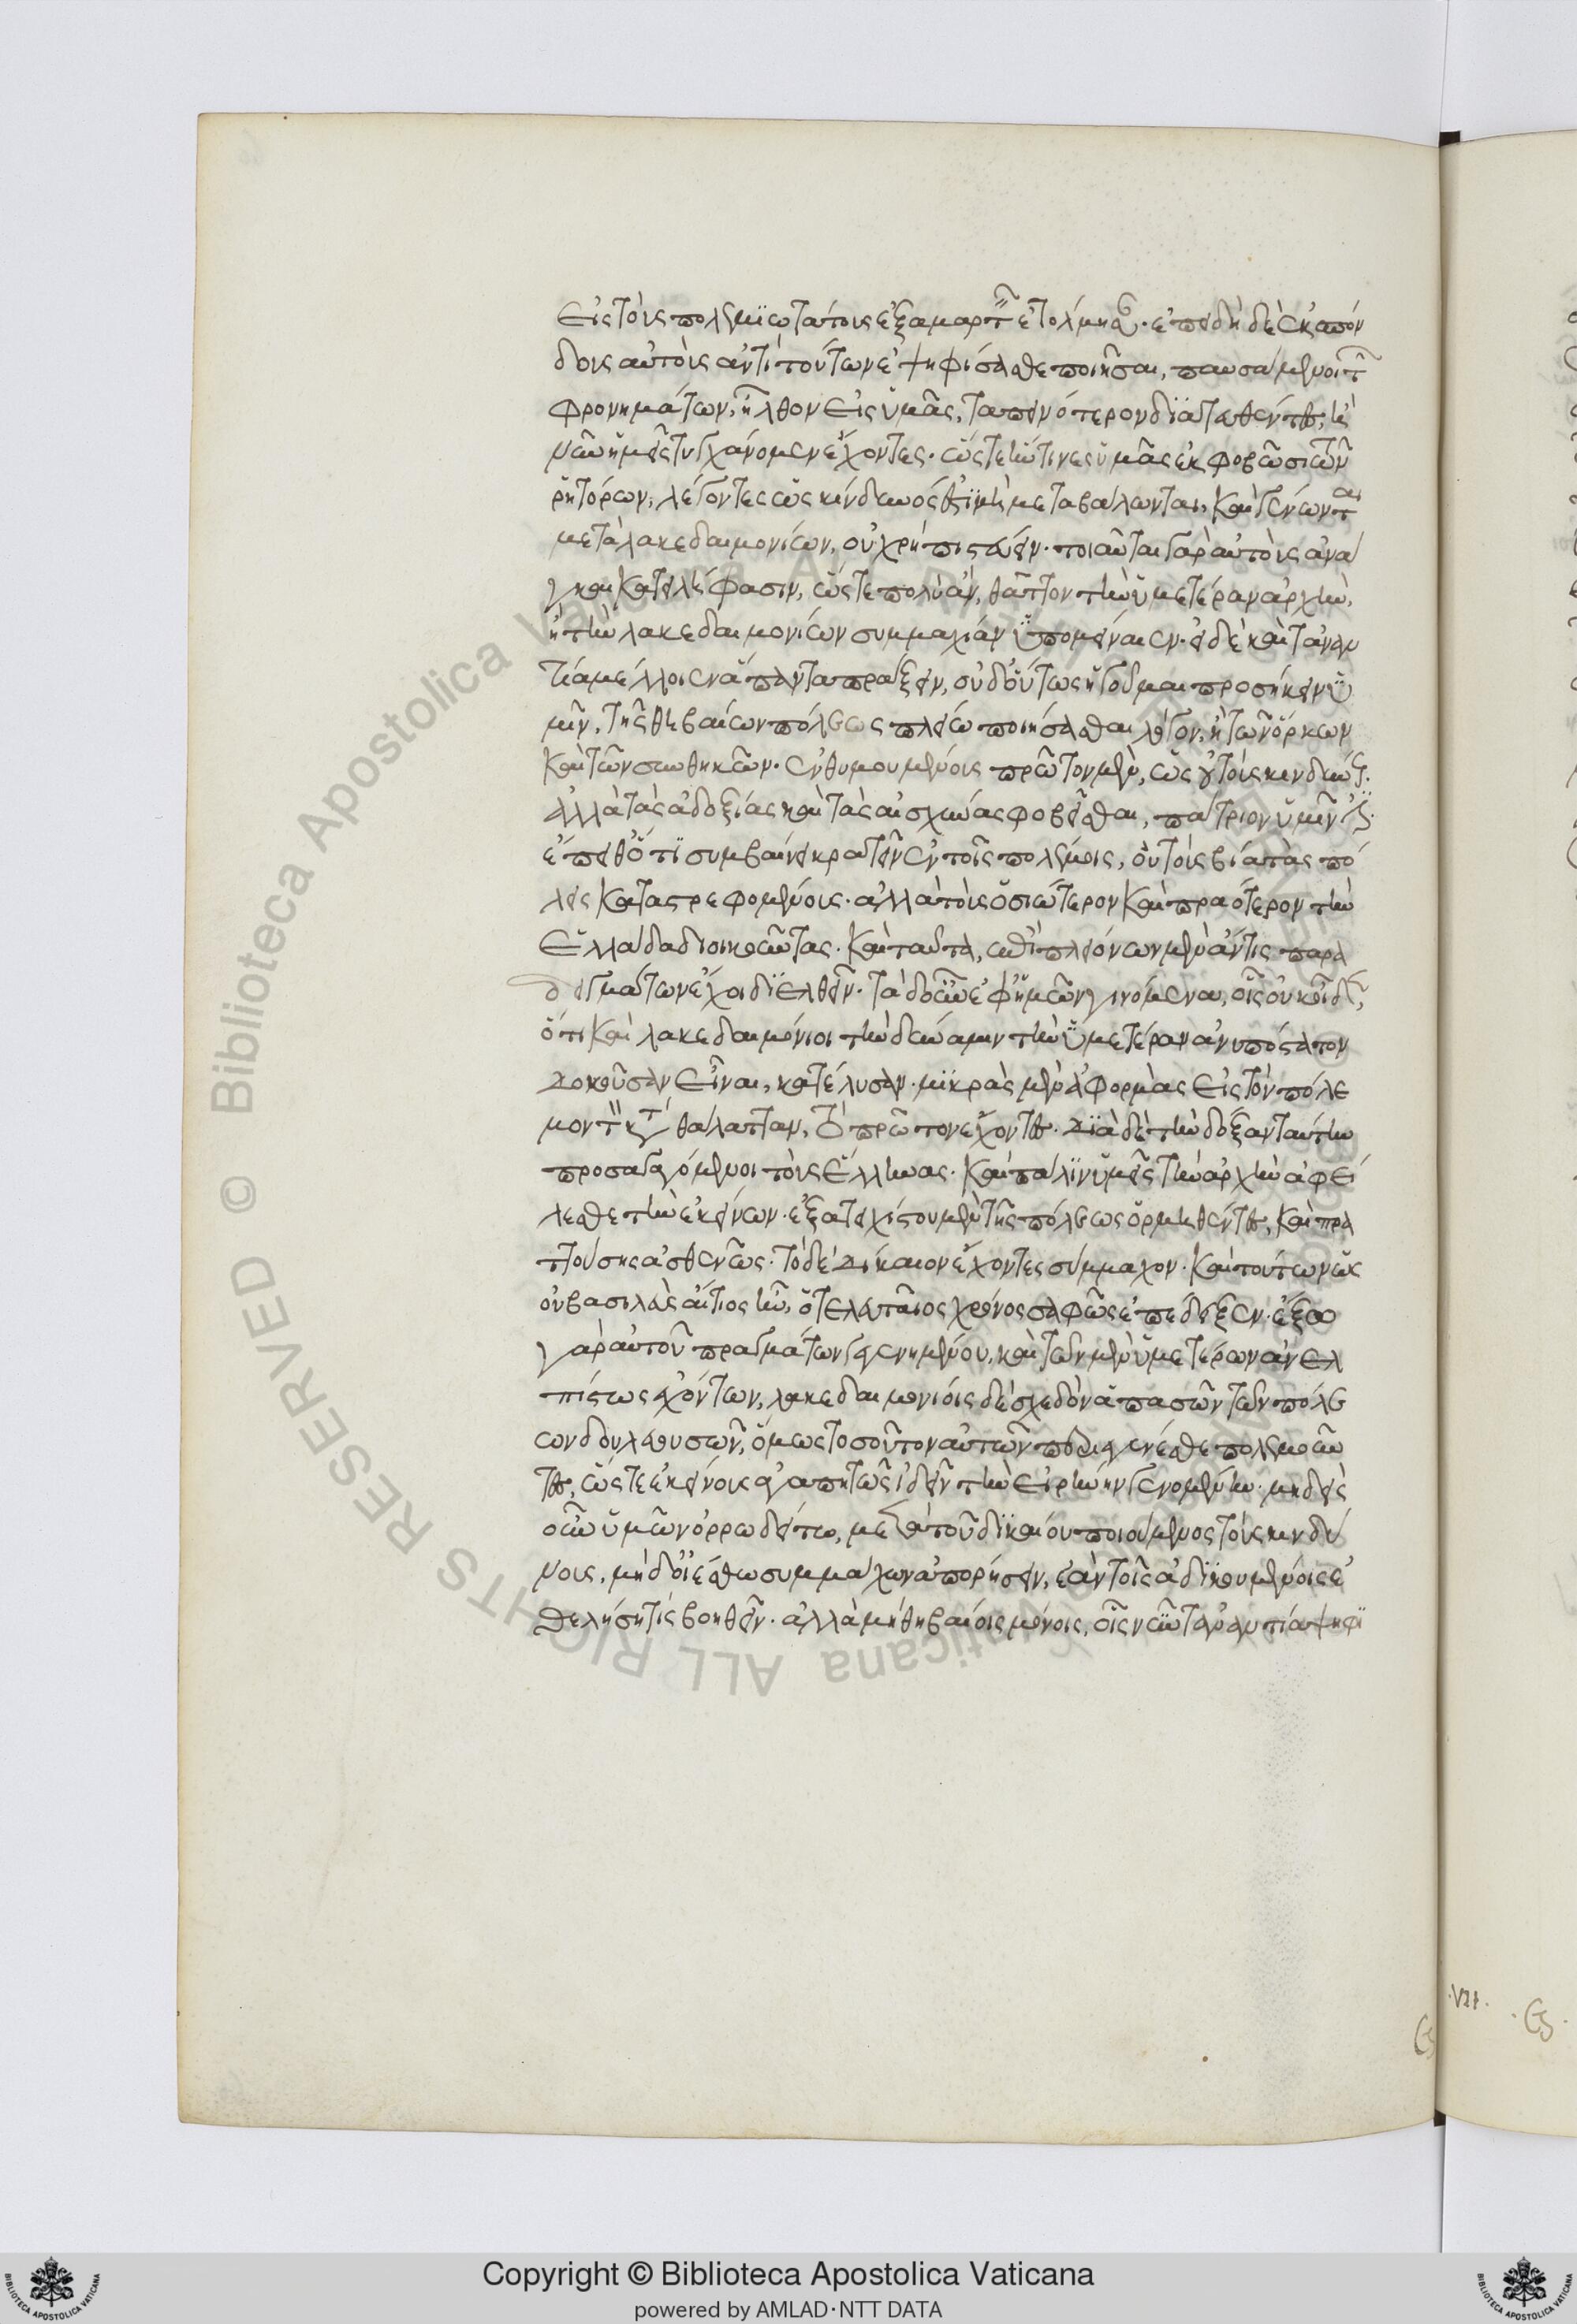 εἰς τοὺς πολεμϊωτάτους ἐξαμαρτεῖν ἐτόλμησαν· ἐπειδὴ δὲ ἐκσπόν
δους αὐτοὺς ἀντὶ τούτων ἐψηφίσασθε ποιῆσαι, παυσάμενοι τῶν
φρονημάτων, ἦλθον εἰς ὑμᾶς, ταπεινότερον διατεθέντες, ἢ
νῦν ἡμεῖς τυγχάνομεν ἔχοντες· ὥςτε ἤν τινες ὑμᾶς ἐκφοβῶσι τῶν
ῥητόρων, λέγοντες ὡς κίνδυνός ἐστϊ μὴ μεταβάλωνται, καὶ γένωνται
μετὰ λακεδαιμονίων, οὐ χρὴ πιστεύειν· τοιαῦται γὰρ αὐτοὺς ἀνά
γκαι κατειλήφασιν, ὥςτε πολὺ ἂν, θᾶττον τὴν ὑμετέραν ἀρχὴν,
ἢ τὴν λακεδαιμονίων συμμαχίαν ὑπομείναιεν· εἰ δὲ καὶ τἀναν
τία μέλλοιεν ἅπαντα πράξειν, οὐδ' οὕτως ἡγοῦμαι προσήκειν ὑ
μῖν, τῆς θηβαίων πόλεως πλείω ποιήσασθαι λόγον, ἢ τῶν ὅρκων
καὶ τῶν συνθηκῶν· ἐνθυμουμένοις πρῶτον μὲν, ὡς οὐ τοὺς κινδύνους·
ἀλλὰ τὰς ἀδοξίας καὶ τὰς αἰσχύνας φοβεῖσθαι, πάτριον ὑμῖν ἐστι·
ἔπειθ' ὅτϊ συμβαίνει κρατεῖν ἐν τοῖς πολέμοις, οὐ τοὺς βίᾳ τὰς πό
λεις καταστρεφομένους· ἀλλὰ τοὺς ὁσιώτερον καὶ πραότερον τὴν
ἑλλάδα διοικοῦντας· καὶ ταῦτα, ἐπὶ πλειόνων μὲν ἄν τις παρα
δειγμάτων ἔχοι διελθεῖν· τὰ δ' οὖν ἐφ' ἡμῶν γινόμενα, τίς οὐκ οἶδεν,
ὅτι καὶ λακεδαιμόνιοι τὴν δύναμιν τὴν ὑμετέραν ἀνυπόστατον
δοκοῦσαν εἶναι, κατέλυσαν· μϊκρὰς μὲν ἀφορμὰς εἰς τὸν πόλε
μον τὸν κατὰ θάλατταν, τὸ πρῶτον ἔχοντες· διὰ δὲ τὴν δόξαν ταύτην
προσαγαγόμενοι τοὺς ἕλληνας· καὶ πάλϊν ὑμεῖς τὴν ἀρχὴν ἀφεί
λεσθε τὴν ἐκείνων· ἐξ ἀτειχίστου μὲν τῆς πόλεως ὁρμηθέντες, καὶ πρα
ττούσης ἀσθενῶς· τὸ δὲ δίκαιον ἔχοντες σύμμαχον· καὶ τούτων ὡς
οὐ βασιλεὺς αἴτιος ἦν, ὁ τελευταῖος χρόνος σαφῶς ἐπέδειξεν· ἔξω
γὰρ αὐτοῦ πραγμάτων γεγενημένου, καὶ τῶν μὲν ὑμετέρων ἀνελ
πίστως ἐχόντων, λακεδαιμονίοις δὲ σχεδὸν ἁπασῶν τῶν πόλε
ων δουλευουσῶν, ὅμως τοσοῦτον αὐτῶν περιεγένεσθε πολεμοῦν
τες, ὥςτε ἐκείνους ἀγαπητῶς ἰδεῖν τὴν εἰρήνην γενομένην· μηδεὶς
οὖν ὑμῶν ὀρρωδείτω, μετὰ τοῦ δϊκαίου ποιούμενος τοὺς κινδύ
νους, μηδ' οἰέσθω συμμάχων ἀπορήσειν, ἐὰν τοῖς ἀδϊκουμένοις ἐ
θελήσητε βοηθεῖν· ἀλλὰ μὴ θηβαίοις μόνοις, οἷς νῦν τἀναντία ψηφι